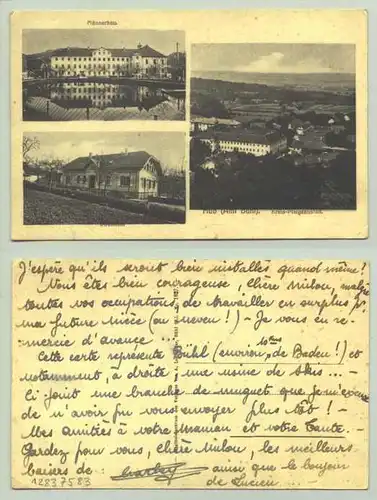 Männerhaus
Hub (Amt Bühl). Kreis-Pflegeanstalt.
J'espère qu'ils seront bien installés quand même!
Vous êtes bien courageuse, chère Milou, malgré
toutes vos occupations, de travailler en surplus pr
ma future nièce (ou neveu!) - Je vous en re-
mercie d'avance ...
10 kms
Cette carte représente Bühl (environ, de Baden!) et
notamment, à droite une usine de skis ... -
Ci-joint une branche de muguet que je m'excuse
de n'avoir pu vous envoyer plus tôt! -
Mes amitiés à votre Maman et votre Tante. -
Gardez pour vous, chère Milou, les meilleurs
baisers de : Charley ainsi que le bonjour
de Lucien. -
12837583